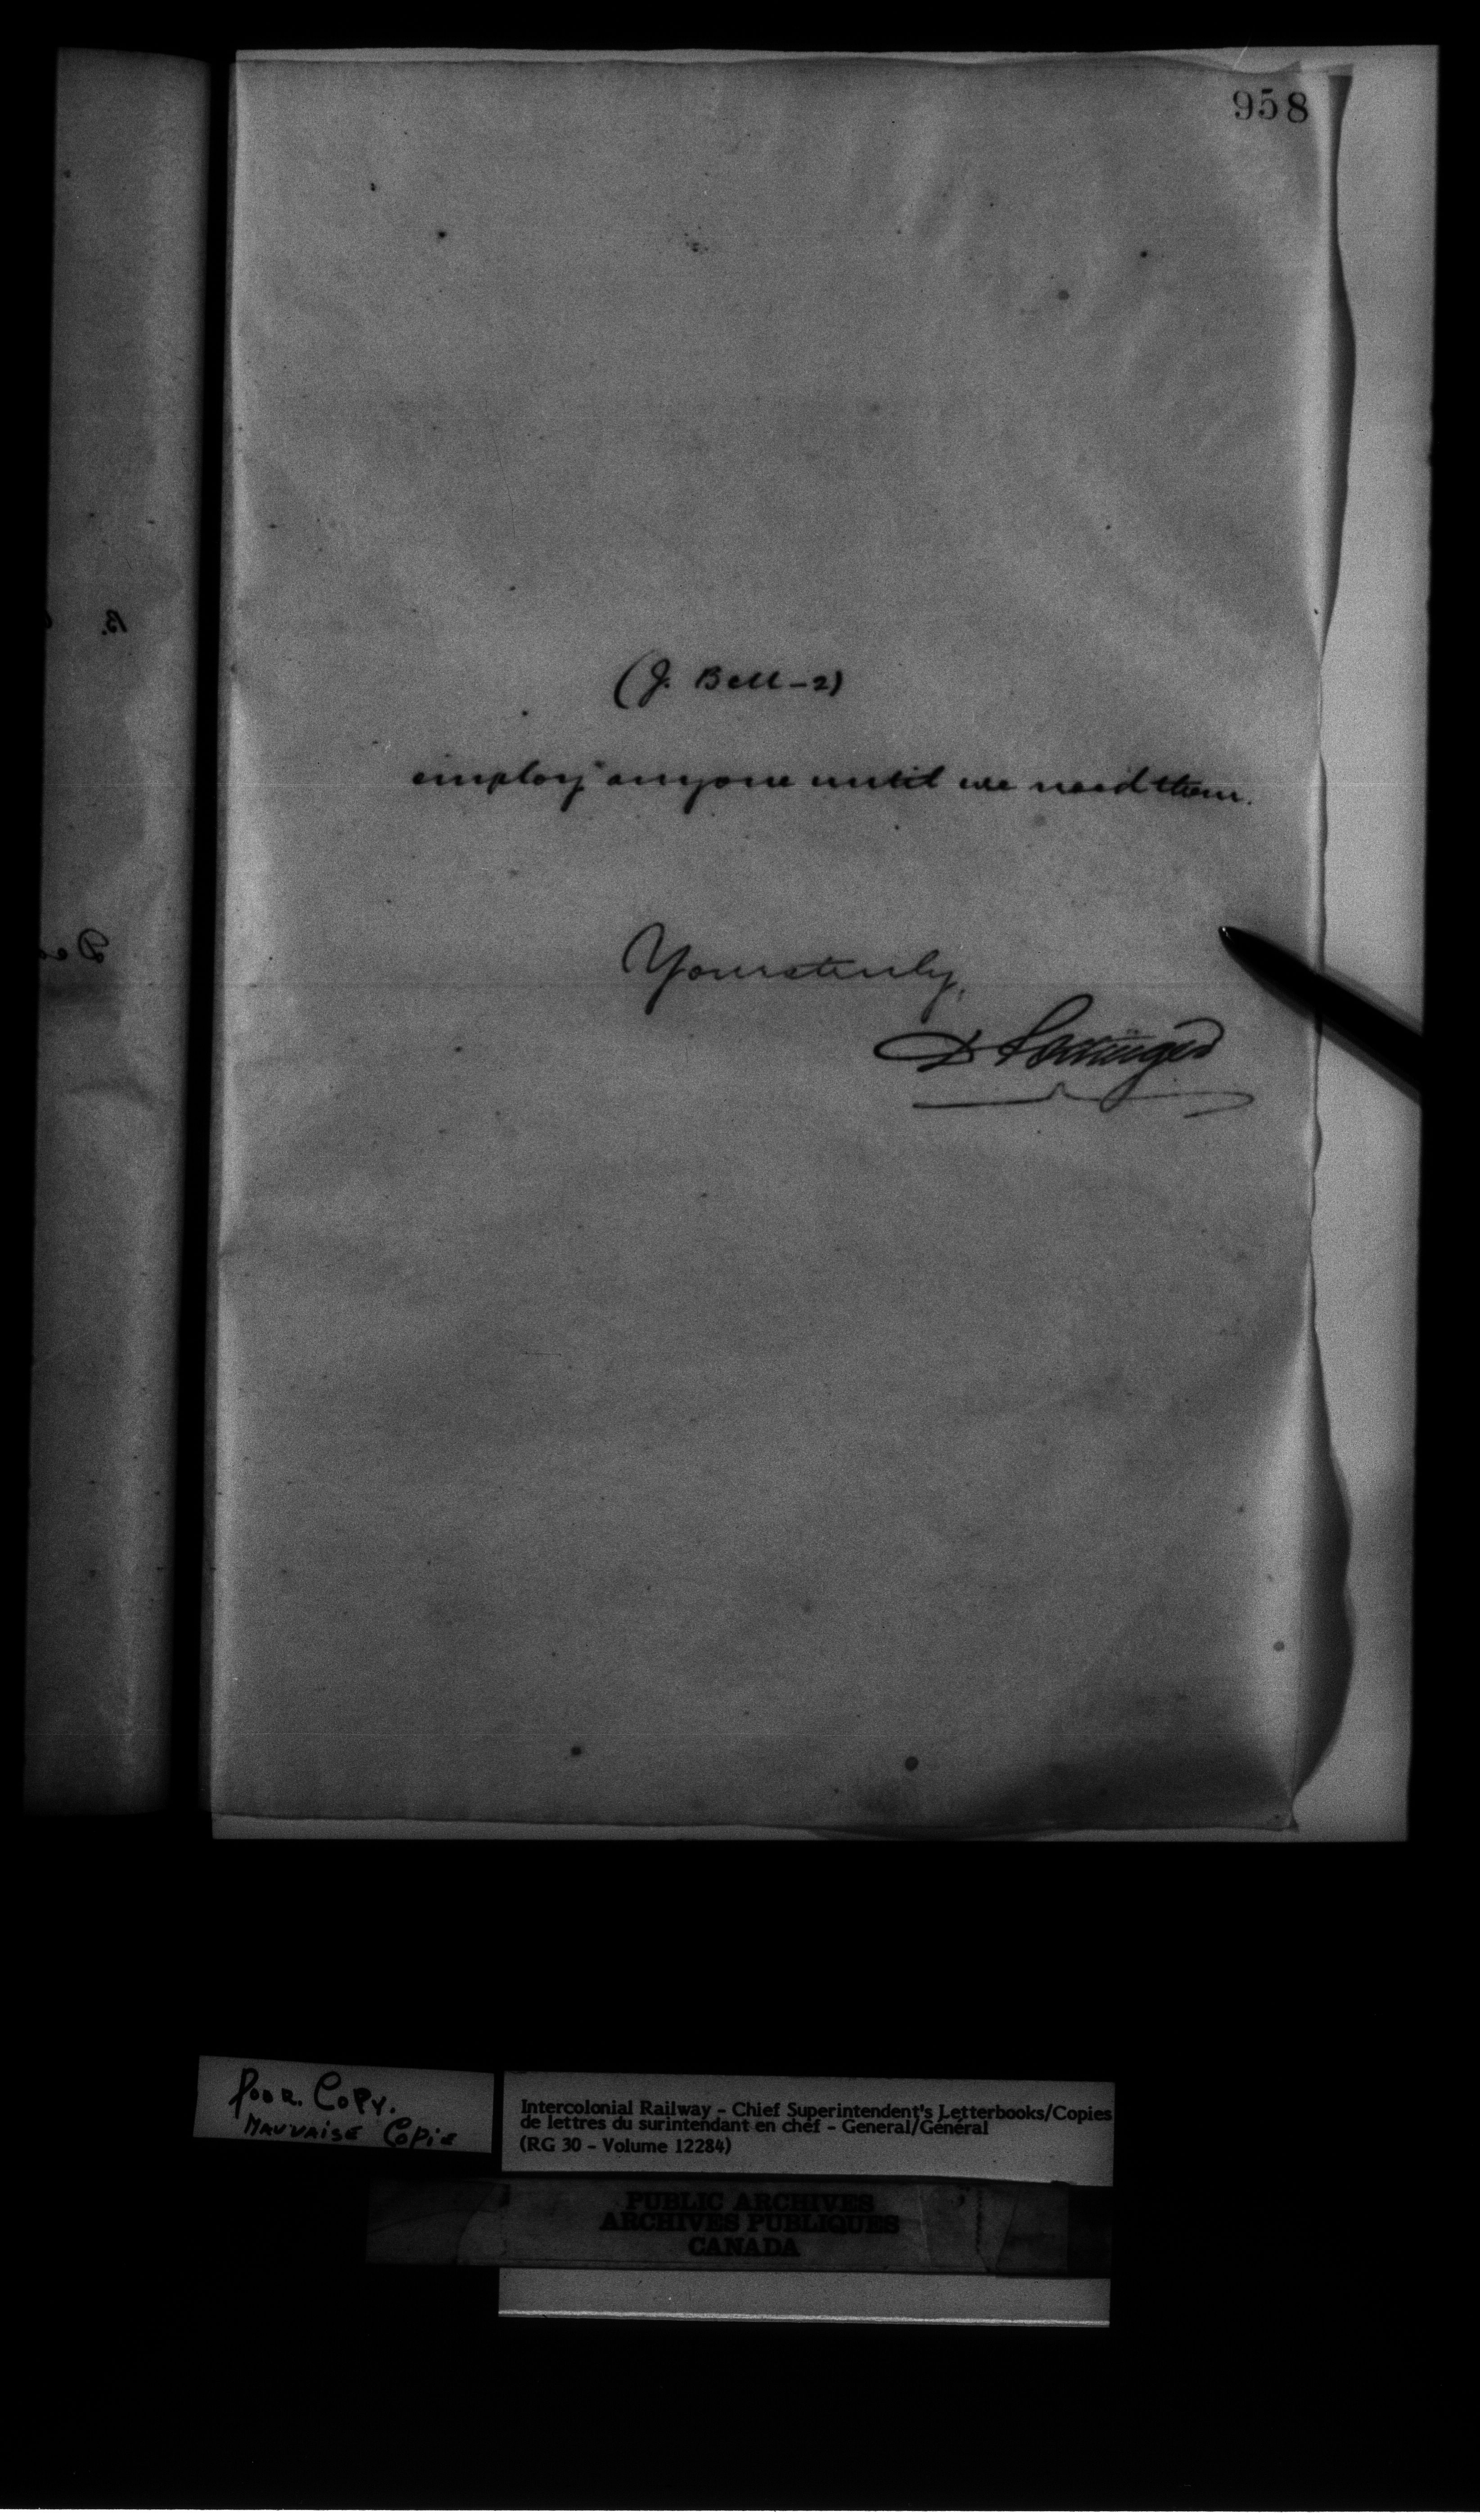 958
(J. Bell-2)
employ anyone until we need them.
Yours truly,
D Pottinger
POOR COPY.
MAUVAISE COPIE
Intercolonial Railway – Chief Superintendent's Letterbooks/Copies
de lettres du surintendant en chef – General/Général
(RG 30 – Volume 12284)
PUBLIC ARCHIVES
ARCHIVES PUBLIQUES
CANADA